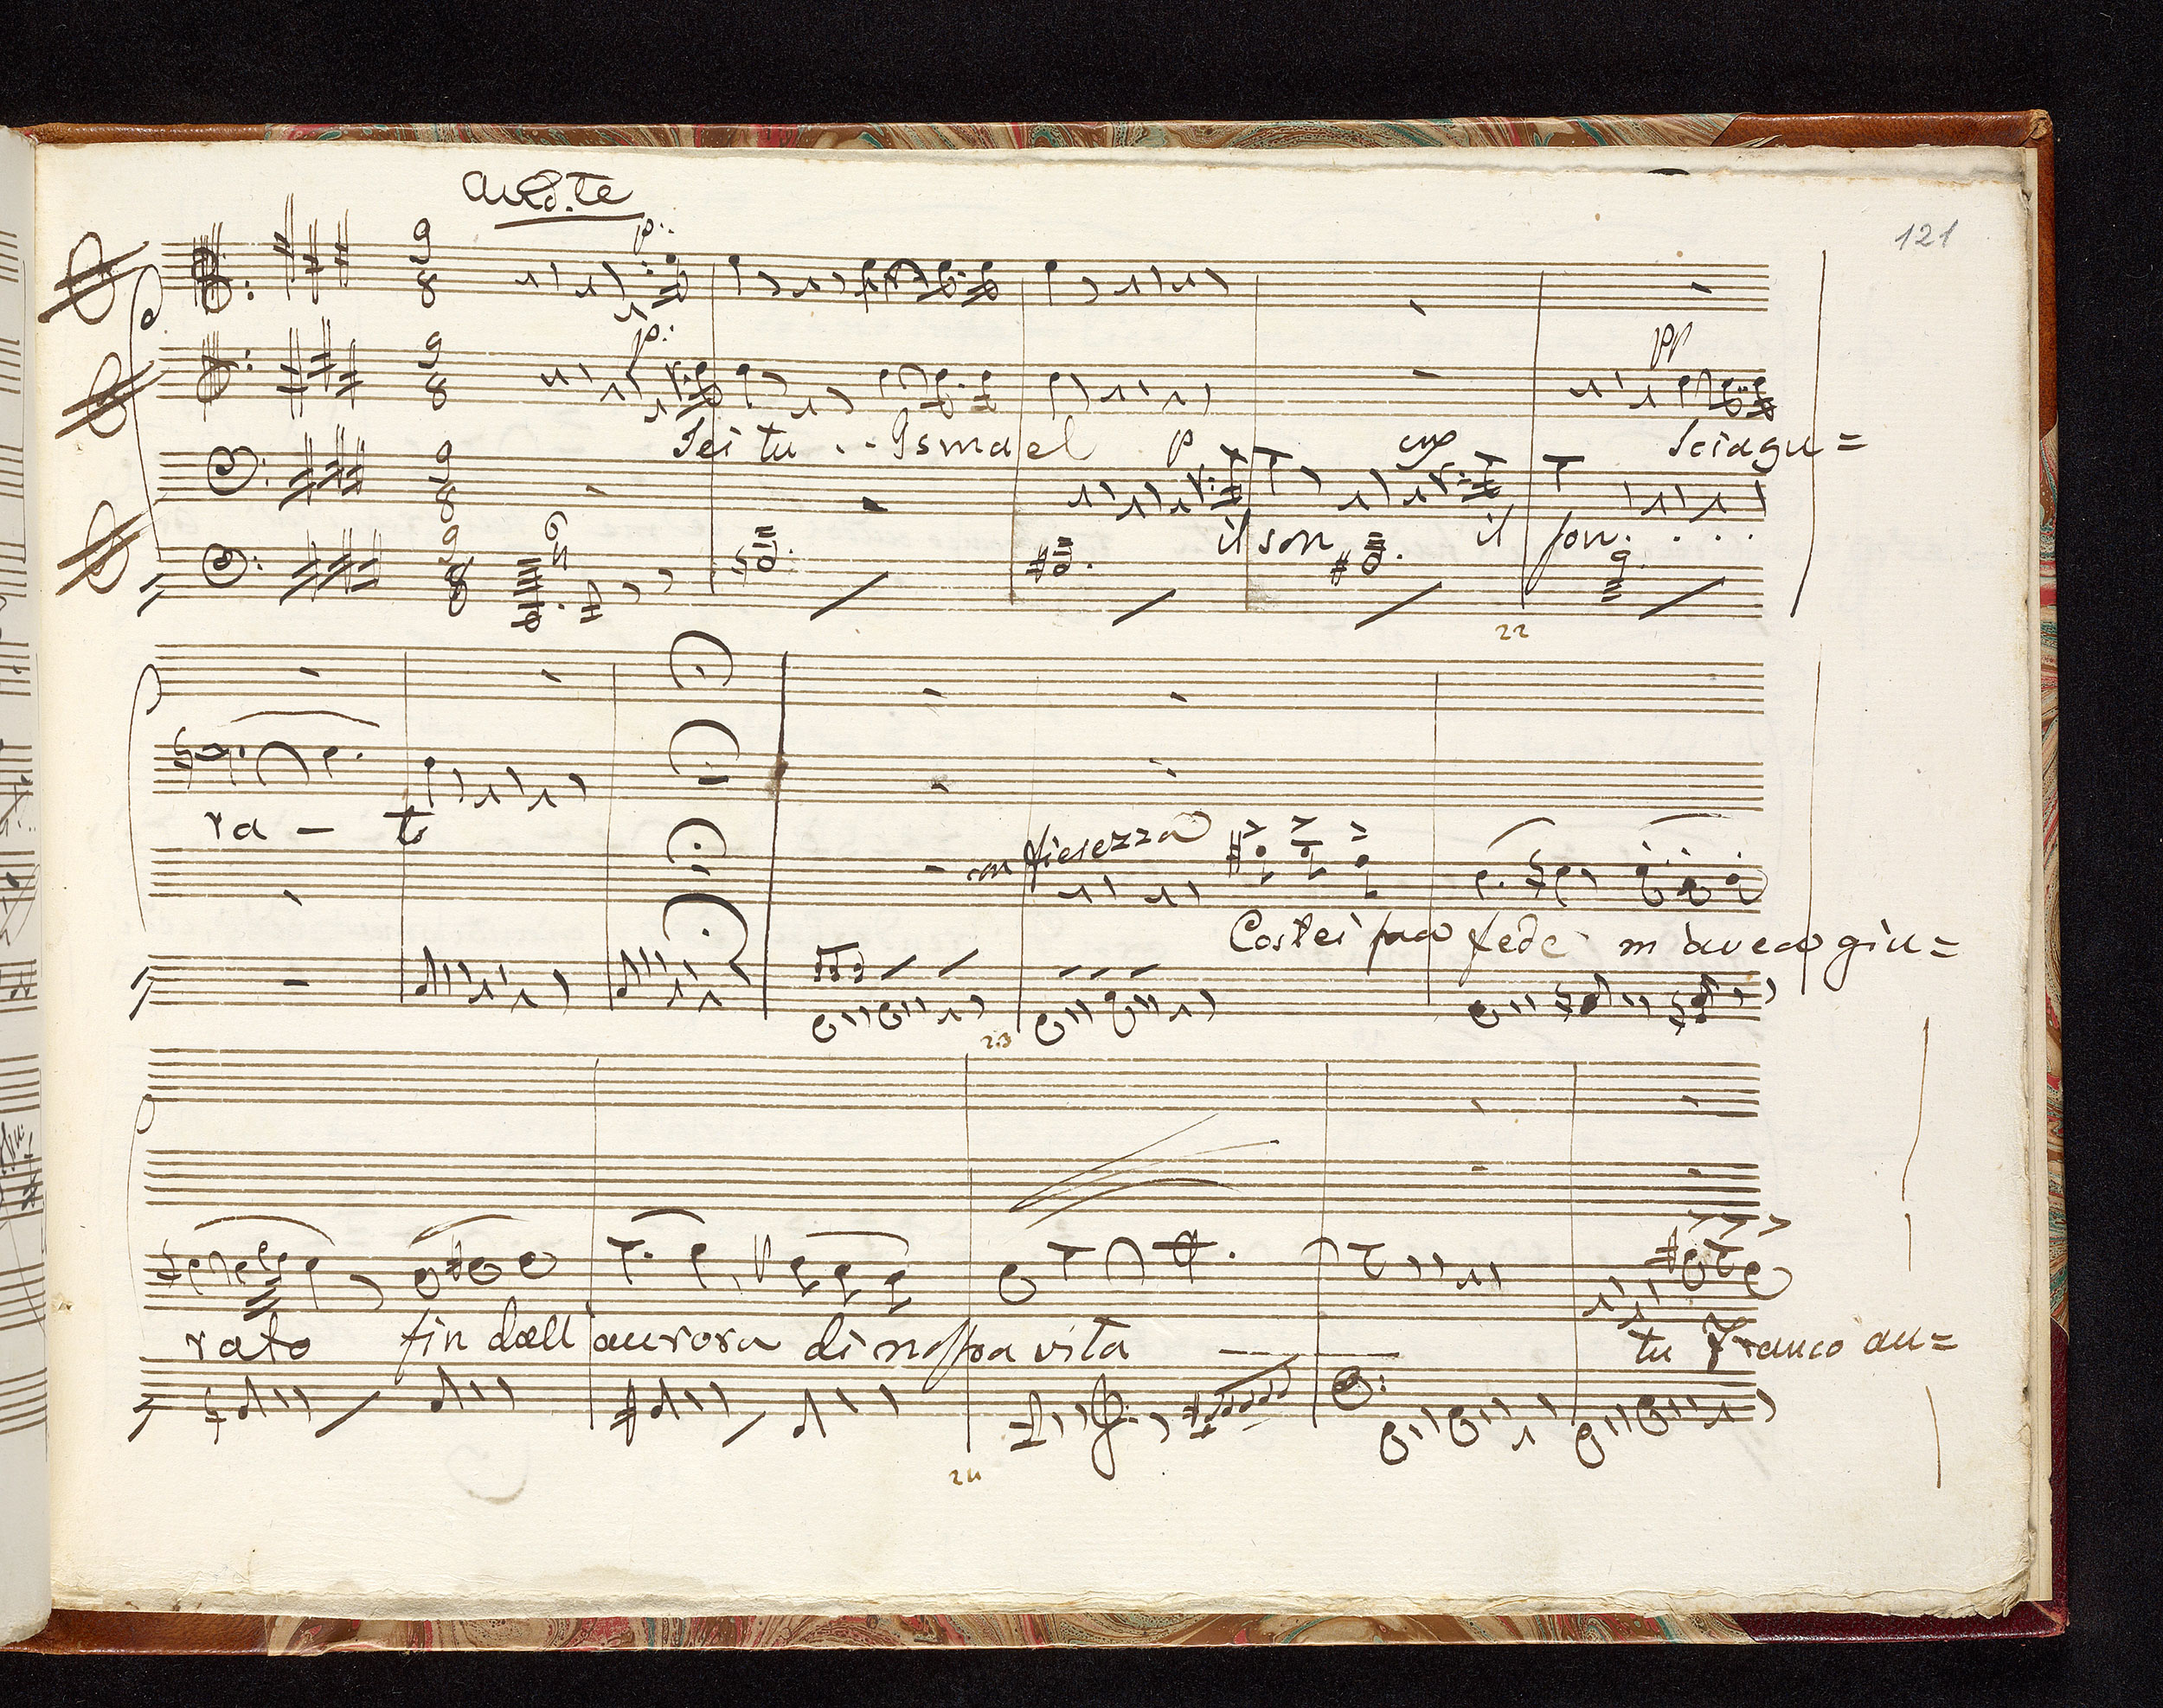 And.te
121
p.
p:
pp
Sei tu . . Ismael
Sciagu=
p
il son il son . . . .
22
ra - to
con fierezza
Costei sua fede m'avea giu=
23
rato fin dall'aurora di nostra vita
tu franco au=
24